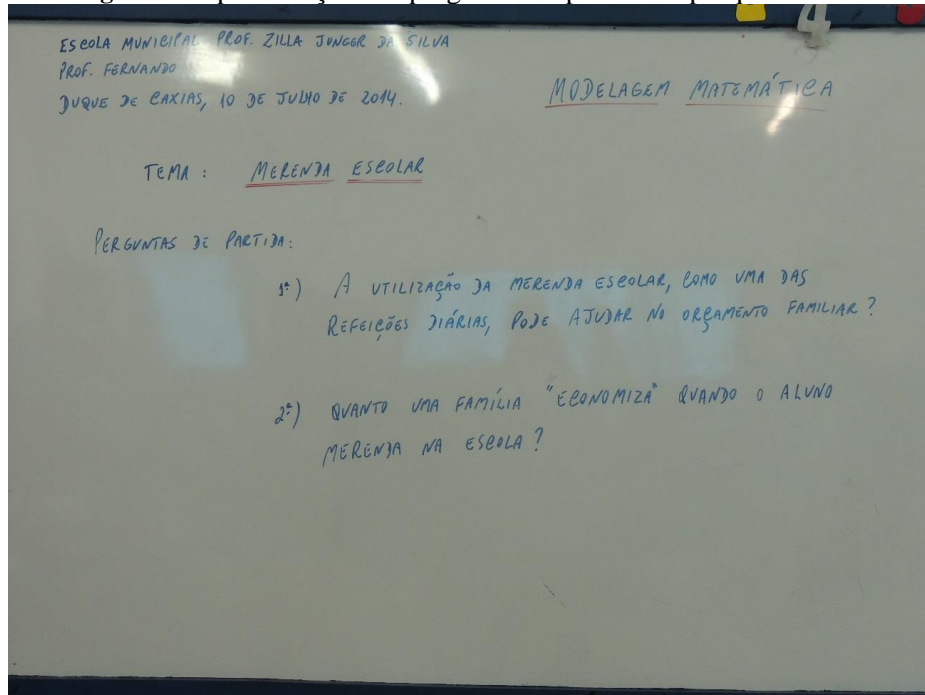 ESCOLA MUNICIPAL PROF. ZILLA JUNGER DA SILVA
PROF. FERNANDO
DUQUE DE CAXIAS, 10 DE JULHO DE 2014.
MODELAGEM MATEMÁTICA
4
TEMA : MERENDA ESCOLAR
PERGUNTAS DE PARTIDA:
1ª) A UTILIZAÇÃO DA MERENDA ESCOLAR, COMO UMA DAS
REFEIÇÕES DIÁRIAS, PODE AJUDAR NO ORÇAMENTO FAMILIAR ?
2ª) QUANTO UMA FAMÍLIA "ECONOMIZA" QUANDO O ALUNO
MERENDA NA ESCOLA ?